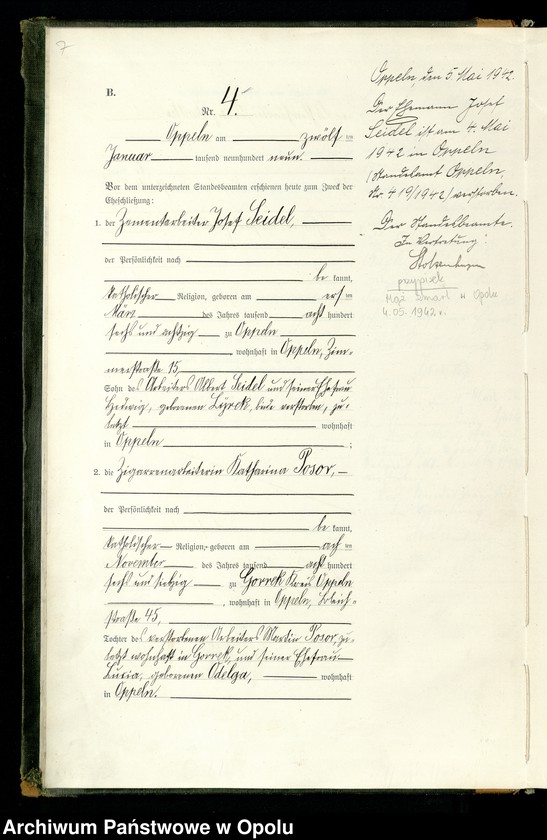 7
B.
Nr. 4.
Oppeln am zwölf ten
Januar tausend neunhundert neun.
Vor dem unterzeichneten Standesbeamten erschienen heute zum Zweck der
Eheschließung:
1. der Zementarbeiter Josef Seidel,
der Persönlichkeit nach
be kannt,
katholischer Religion, geboren am ers ten
März des Jahres tausend acht hundert
sechs und achtzig zu Oppeln
, wohnhaft in Oppeln, Zim-
merstraße 15
Sohn des Arbeiters Albert Seidel und seiner Ehefrau
Hedwig, geborenen beide verstorben, zu-
letzt wohnhaft
in Oppeln ;
2. die Zigarrenarbeiterin Katharina Posor,
der Persönlichkeit nach
be kannt,
katholischer Religion, geboren am ach ten
November des Jahres tausend acht hundert
sechs und siebzig zu Gorrek Kreis Oppeln
, wohnhaft in Oppeln, Bleich-
straße 45,
Tochter des verstorbenen Arbeiters Martin Posor, zu-
letzt wohnhaft in Gorrek, und seiner Ehefrau
Lucia, geborenen Odelga, wohnhaft
in Oppeln.
Oppeln, den 5. Mai 1942.
Der Ehemann Josef
Seidel ist am 4. Mai
1942 in Oppeln
(Standesamt Oppeln,
Nr. 419/1942) verstorben.
Der Standesbeamte.
In Vertretung:
przypisek
Mąż zmarł w Opolu
4.05.1942 r.
Archiwum Państwowe w Opolu